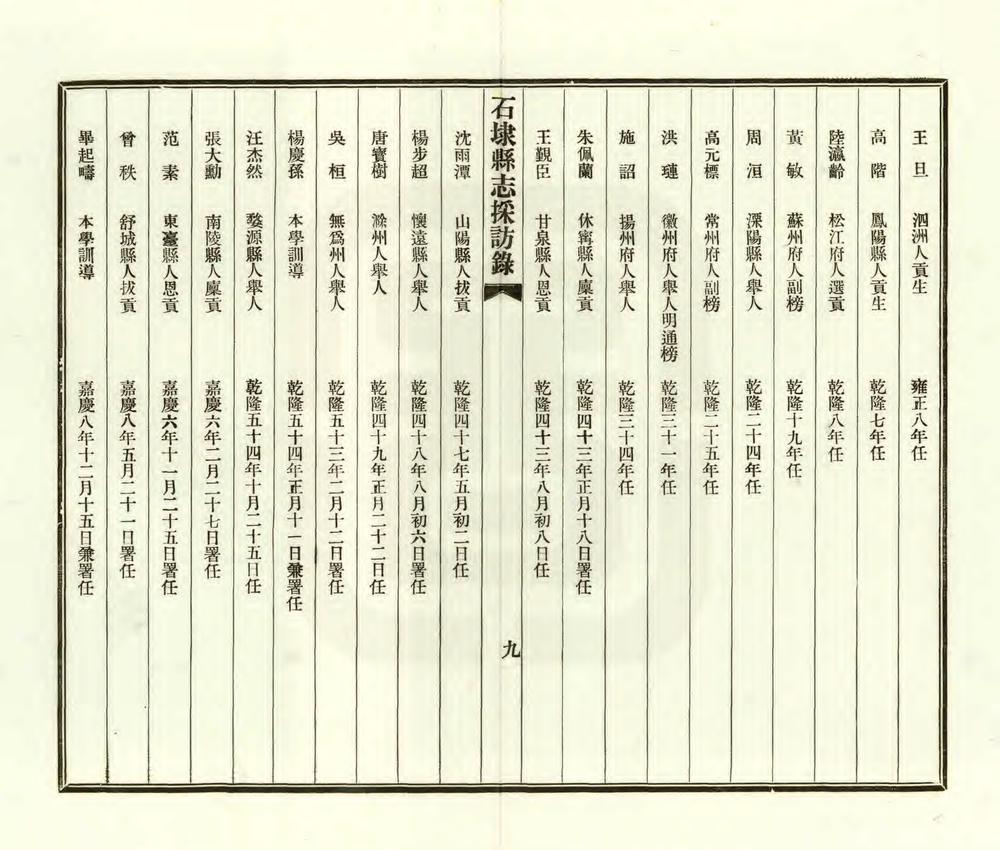 王旦 泗洲人貢生 雍正八年任
高階 鳳陽縣人貢生 乾隆七年任
陸瀛齡 松江府人選貢 乾隆八年任
黃敏 蘇州府人副榜 乾隆十九年任
周洹 溧陽縣人舉人 乾隆二十四年任
高元標 常州府人副榜 乾隆二十五年任
洪璉 徽州府人舉人明通榜 乾隆三十一年任
施詔 揚州府人舉人 乾隆三十四年任
朱佩蘭 休寗縣人廩貢 乾隆四十三年正月十八日署任
王覲臣 甘泉縣人恩貢 乾隆四十三年八月初八日任
石埭縣志採訪錄 九
沈雨潭 山陽縣人拔貢 乾隆四十七年五月初二日任
楊步超 懷遠縣人舉人 乾隆四十八年八月初六日署任
唐寶樹 滁州人舉人 乾隆四十九年正月二十二日任
吳桓 無爲州人舉人 乾隆五十三年二月十二日署任
楊慶孫 本學訓導 乾隆五十四年正月十一日兼署任
汪杰然 婺源縣人舉人 乾隆五十四年十月二十五日任
張大勳 南陵縣人廩貢 嘉慶六年二月二十七日署任
范素 東臺縣人恩貢 嘉慶六年十一月二十五日署任
曾秩 舒城縣人拔貢 嘉慶八年五月二十一日署任
畢起疇 本學訓導 嘉慶八年十二月十五日兼署任